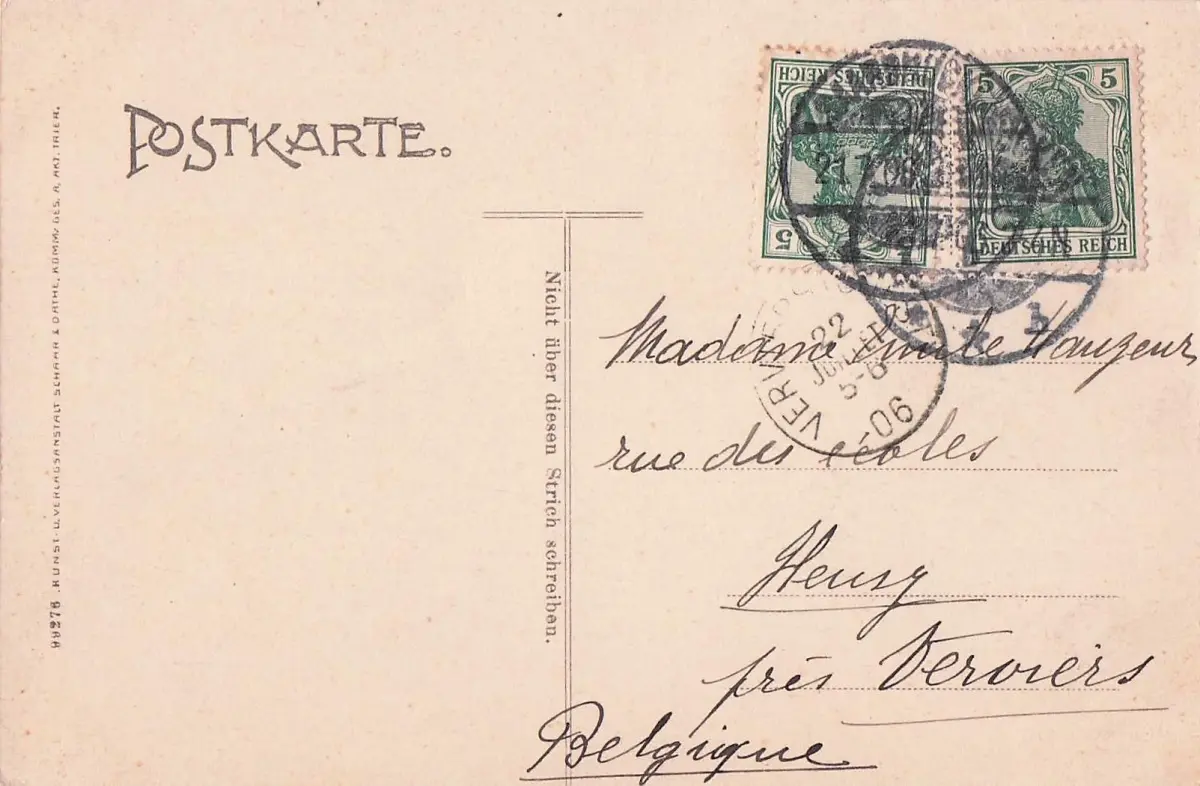 POSTKARTE.
99276 KUNST- U. VERLAGSANSTALT SCHAAR & DATHE, KOMM.-GES. A. AKT. TRIER.
DEUTSCHES REICH
5
5 5
DEUTSCHES REICH
21.7.06
7-8N
b
VERVIERS
22
JUILLET
5-6
06
Nicht über diesen Strich schreiben.
Madame Emile
rue des écoles
Heusy
près Verviers
Belgique